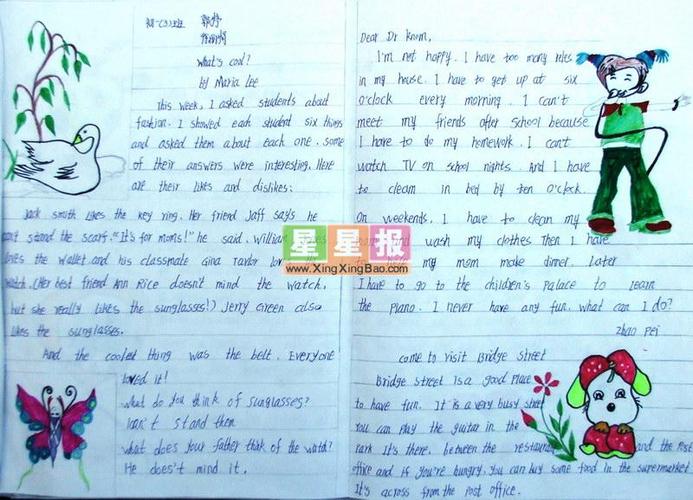 初一(3)班
What's cool?
by Maria Lee
This week, I asked students about
fashion. I showed each student six things
and asked them about each one. some
of their answers were interesting. Here
are their likes and dislikes:
Jack smith likes the key ring. Her friend Jaff says he
can't stand the scarf. "It's for moms!" he said. William
loves the wallet and his classmate Gina Taylor
watch. (Her best friend Ann Rice doesn't mind the watch,
but she really likes the sunglasses!) Jerry Green also
likes the sunglasses.
And the coolest thing was the belt. Everyone
loved it!
what do you think of sunglasses?
I can't stand them
what does your father think of the watch?
He does't mind it.
Dear Dr know,
I'm not happy. I have too many rules
in my house. I have to get up at six
o'clock every morning. I can't
meet my friends after school because
I have to do my homework. I can't
watch TV on school nights. And I have
to cleam in bed by ten o'clock.
On weekends. I have to clean my
and wash my clothes. Then I have
my mom make dinner. Later
I have to go to the children's palace to learn
the piano. I never have any fun. what can I do?
zhao pei
come to visit Bridge street
Bridge street Is a good place
to have fun. It is a very busy street
You can play the guitar in the
park It's there. between the restaurant and the post
office and if you're hungry. You can buy some food in the supermarket
It's across from the post office.
星星报
www.XingXingBao.com